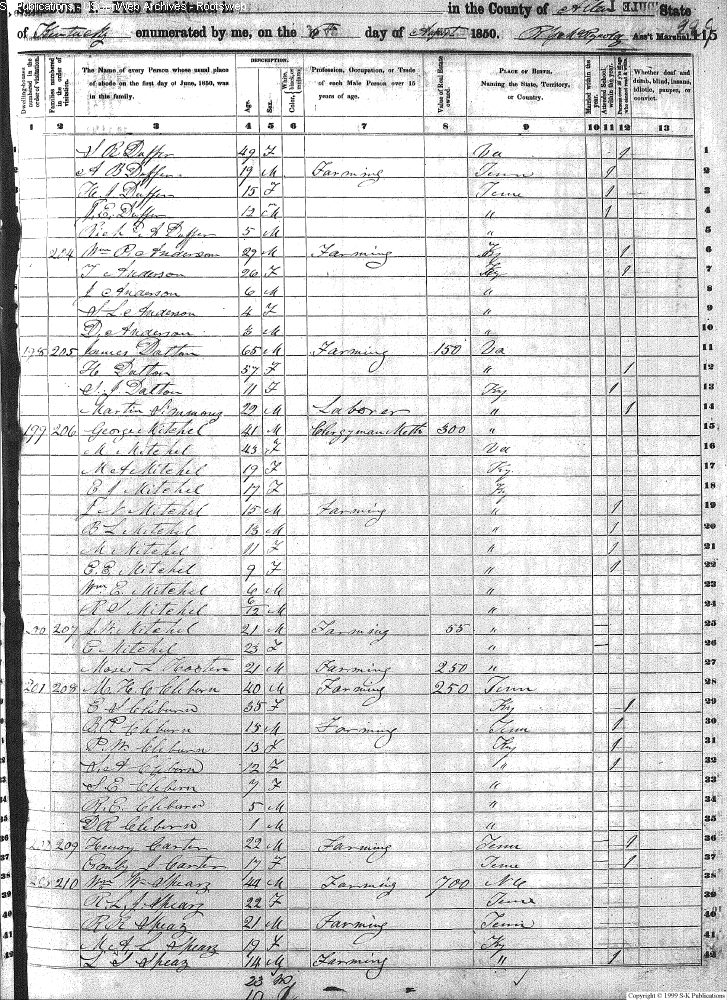 S. Publications, USGenWeb Archives - Rootsweb
in the County of Allen State
of Kentucky enumerated by me, on the 6th day of August 1850. Ass't Marshal. 415
Dwelling-houses numbered in the order of visitation.
Families numbered in the order of visitation.
The Name of every Person whose usual place of abode on the first day of June, 1850, was in this family.
DESCRIPTION.
Age.
Sex.
Color, White, black, or mulatto.
Profession, Occupation, or Trade of each Male Person over 15 years of age.
Value of Real Estate owned.
PLACE OF BIRTH. Naming the State, Territory, or Country.
Married within the year.
Attended School within the year.
Persons over 20 y'rs of age who cannot read & write.
Whether deaf and dumb, blind, insane, idiotic, pauper, or convict.
1 2 3 4 5 6 7 8 9 10 11 12 13
1 S R Duffer 49 F Va / 1
2 A B Duffer 19 M Farming Tenn / 2
3 H J Duffer 15 F Tenn / 3
4 J. E. Duffer 12 M " / 4
5 A Duffer 5 M " 5
6 204 Wm P. Anderson 29 M Farming Ky / 6
7 T Anderson 26 F Ky / 7
8 J Anderson 6 M " 8
9 S L Anderson 4 F " 9
10 D. Anderson 3 M " 10
11 198 205 James Dalton 65 M Farming 150 Va 11
12 H Dalton 57 F " / 12
13 S. J. Dalton 11 F Ky / 13
14 Martin Simmons 22 M Laborer " / 14
15 199 206 George Mitchel 41 M Clergyman Meth 300 " 15
16 M Mitchel 43 F Va 16
17 M A Mitchel 19 F Ky 17
18 E J Mitchel 17 F Ky 18
19 J N Mitchel 15 M Farming " / 19
20 B L Mitchel 13 M " / 20
21 M Mitchel 11 F " / 21
22 E. E. Mitchel 9 F " / 22
23 Wm E. Mitchel 6 M " 23
24 R S Mitchel 6/12 M " 24
25 200 207 J. W. Mitchel 21 M Farming 55 " — 25
26 E Mitchel 23 F " — 26
27 Moses L 21 M Farming 250 " 27
28 201 208 M. H. C Cliburn 40 M Farming 250 Tenn 28
29 E S Cliburn 35 F Ky / 29
30 B. P. Cliburn 15 M Farming Tenn / 30
31 P. W. Cliburn 13 F Ky / 31
32 S. A Cliborn 12 F " / 32
33 S. E Cliburn 7 F " 33
34 R. E. Cliburn 5 M " 34
35 D R Cliburn 1 M " 35
36 202 209 Henry Carter 22 M Farming Tenn / 36
37 Emily J Carter 17 F Tenn / 37
38 203 210 Wm W Spearz 44 M Farming 700 N C 38
39 R L J Spearz 22 F Tenn 39
40 R R Spear 21 M Farming Tenn 40
41 M A L Spearz 19 F Ky 41
42 L S Spear 14 M Farming " / 42
23 M
19 F
Copyright © 1999 S-K Publications